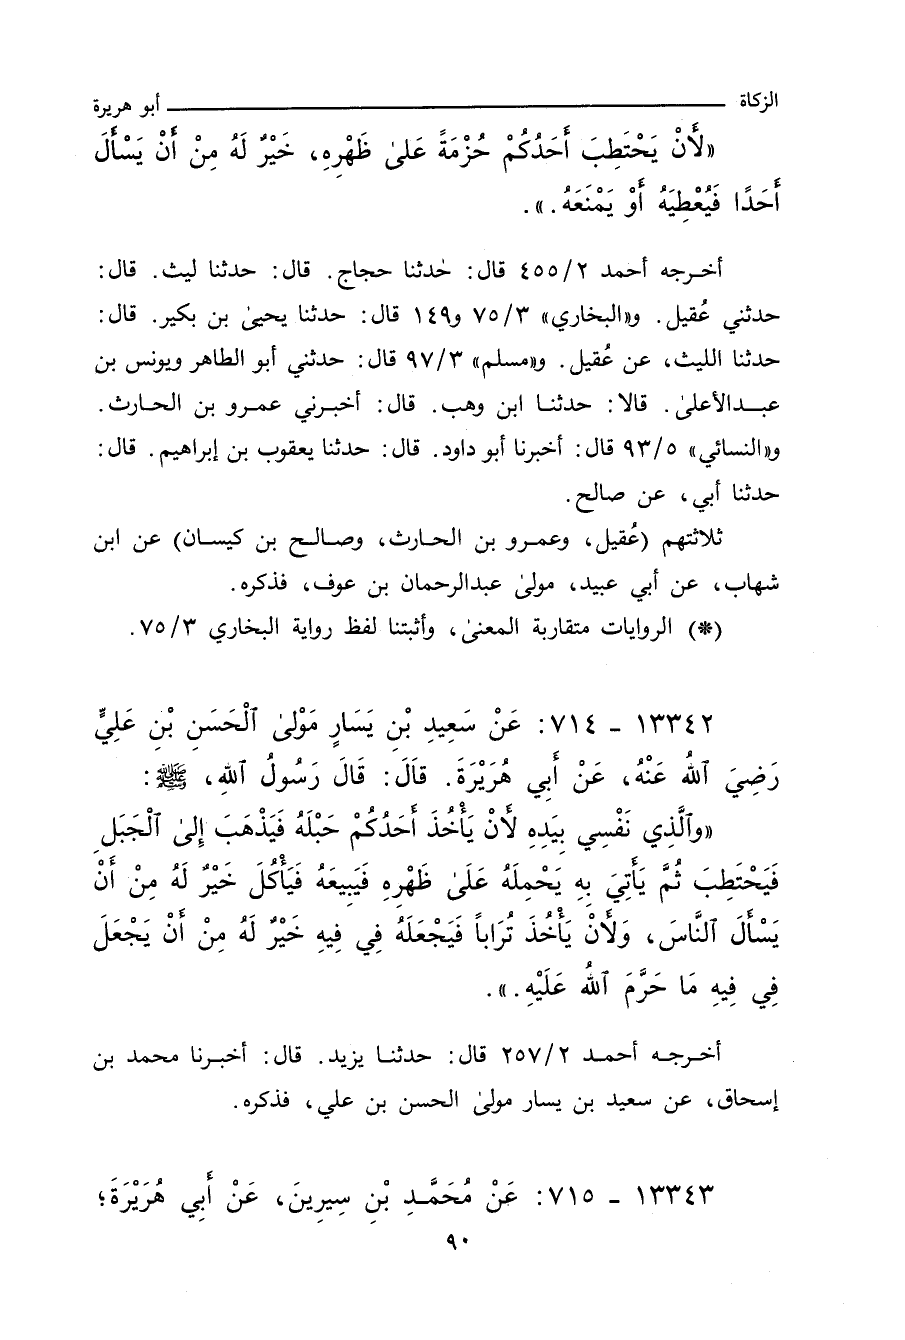 الزكاة ـــــــــ أبو هريرة
«لَأَنْ يَحْتَطِبَ أَحَدُكُمْ حُزْمَةً عَلَىٰ ظَهْرِهِ، خَيْرٌ لَهُ مِنْ أَنْ يَسْأَلَ
أَحَدًا فَيُعْطِيَهُ أَوْ يَمْنَعَهُ.».
أخرجه أحمد ٤٥٥/٢ قال: حَدثنا حجاج. قال: حدثنا ليث. قال:
حدثني عُقيل. و«البخاري» ٧٥/٣ و١٤٩ قال: حدثنا يحيىٰ بن بكير. قال:
حدثنا الليث، عن عُقيل. و«مسلم» ٩٧/٣ قال: حدثني أبو الطاهر ويونس بن
عبدالأعلىٰ. قالا: حدثنا ابن وهب. قال: أخبرني عمرو بن الحارث.
و«النسائي» ٩٣/٥ قال: أخبرنا أبو داود. قال: حدثنا يعقوب بن إبراهيم. قال:
حدثنا أبي، عن صالح.
ثلاثتهم (عُقيل، وعمرو بن الحارث، وصالح بن كيسان) عن ابن
شهاب، عن أبي عبيد، مولىٰ عبدالرحمان بن عوف، فذكره.
(*) الروايات متقاربة المعنىٰ، وأثبتنا لفظ رواية البخاري ٧٥/٣.
١٣٣٤٢ - ٧١٤: عَنْ سَعِيدِ بْنِ يَسَارٍ مَوْلَىٰ ٱلْحَسَنِ بْنِ عَلِيٍّ
رَضِيَ ٱللهُ عَنْهُ، عَنْ أَبِي هُرَيْرَةَ. قَالَ: قَالَ رَسُولُ ٱللهِ، ﷺ:
«وٱلَّذِي نَفْسِي بِيَدِهِ لَأَنْ يَأْخُذَ أَحَدُكُمْ حَبْلَهُ فَيَذْهَبَ إِلىٰ ٱلْجَبَلِ
فَيَحْتَطِبَ ثُمَّ يَأْتِيَ بِهِ يَحْمِلَهُ عَلَىٰ ظَهْرِهِ فَيَبِيعَهُ فَيَأْكُلَ خَيْرٌ لَهُ مِنْ أَنْ
يَسْأَلَ ٱلنَّاسَ، وَلَأَنْ يَأْخُذَ تُرَاباً فَيَجْعَلَهُ فِي فِيهِ خَيْرٌ لَهُ مِنْ أَنْ يَجْعَلَ
فِي فِيهِ مَا حَرَّمَ ٱللهُ عَلَيْهِ.».
أخرجه أحمد ٢٥٧/٢ قال: حدثنا يزيد. قال: أخبرنا محمد بن
إسحاق، عن سعيد بن يسار مولىٰ الحسن بن علي، فذكره.
١٣٣٤٣ - ٧١٥: عَنْ مُحَمَّدِ بْنِ سِيرِينَ، عَنْ أَبِي هُرَيْرَةَ؛
٩٠